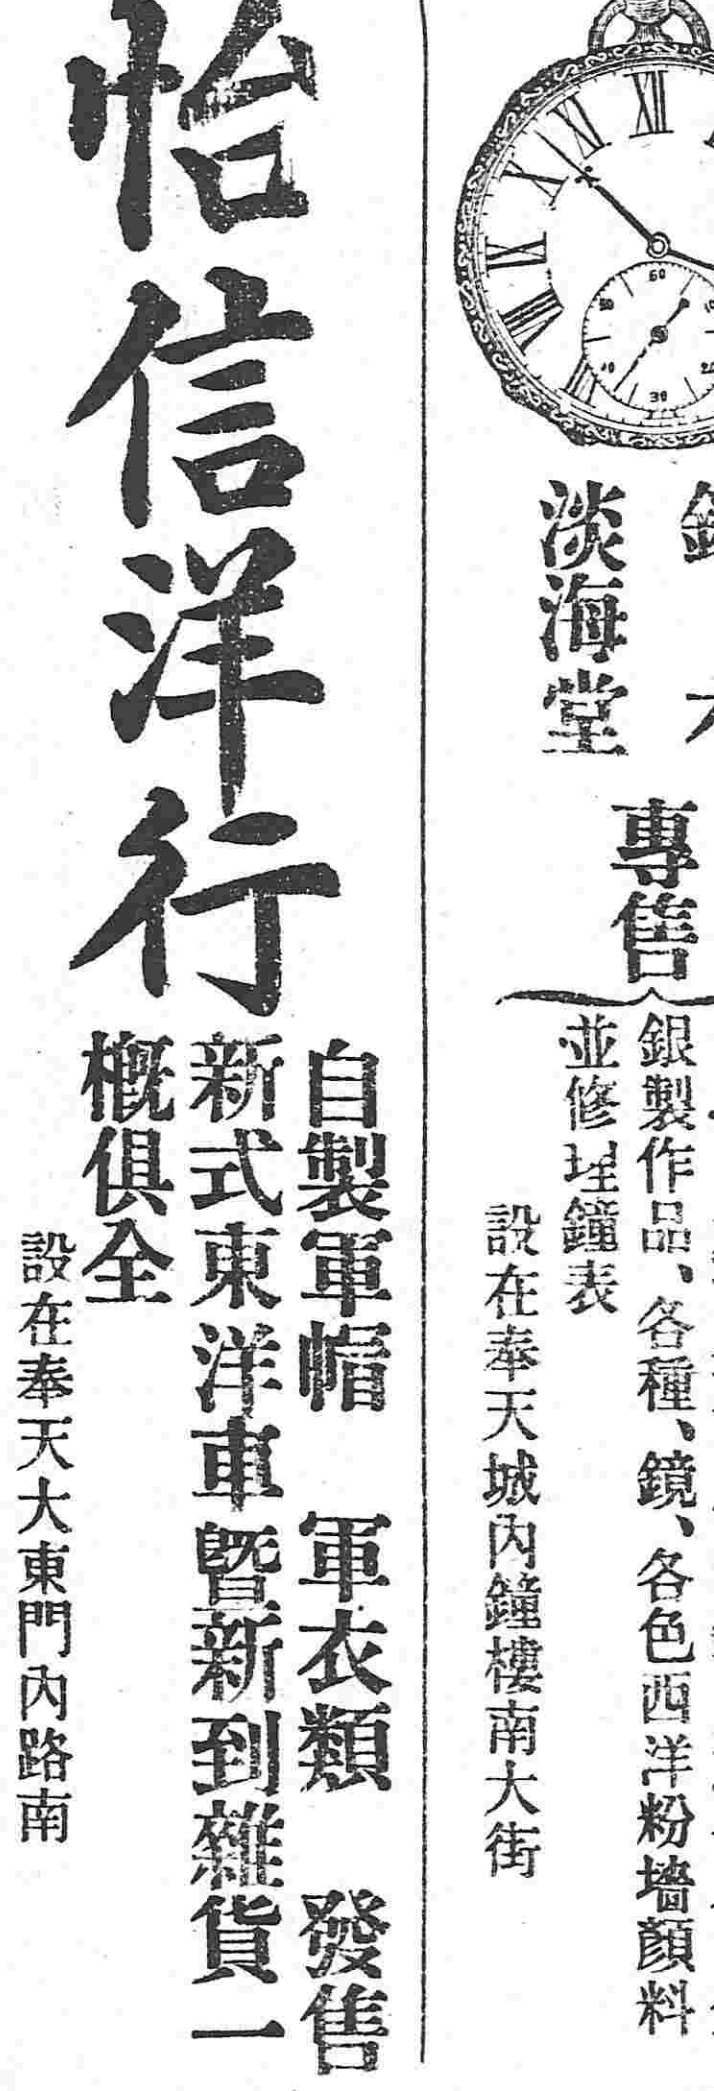 淡海堂
專售
銀製作品、各種、鏡、各色西洋粉墻顏料
並修理鐘表
設在奉天城內鐘樓南大街
怡信洋行
自製軍帽　軍衣類　發售
新式東洋車暨新到雜貨一
概俱全
設在奉天大東門內路南